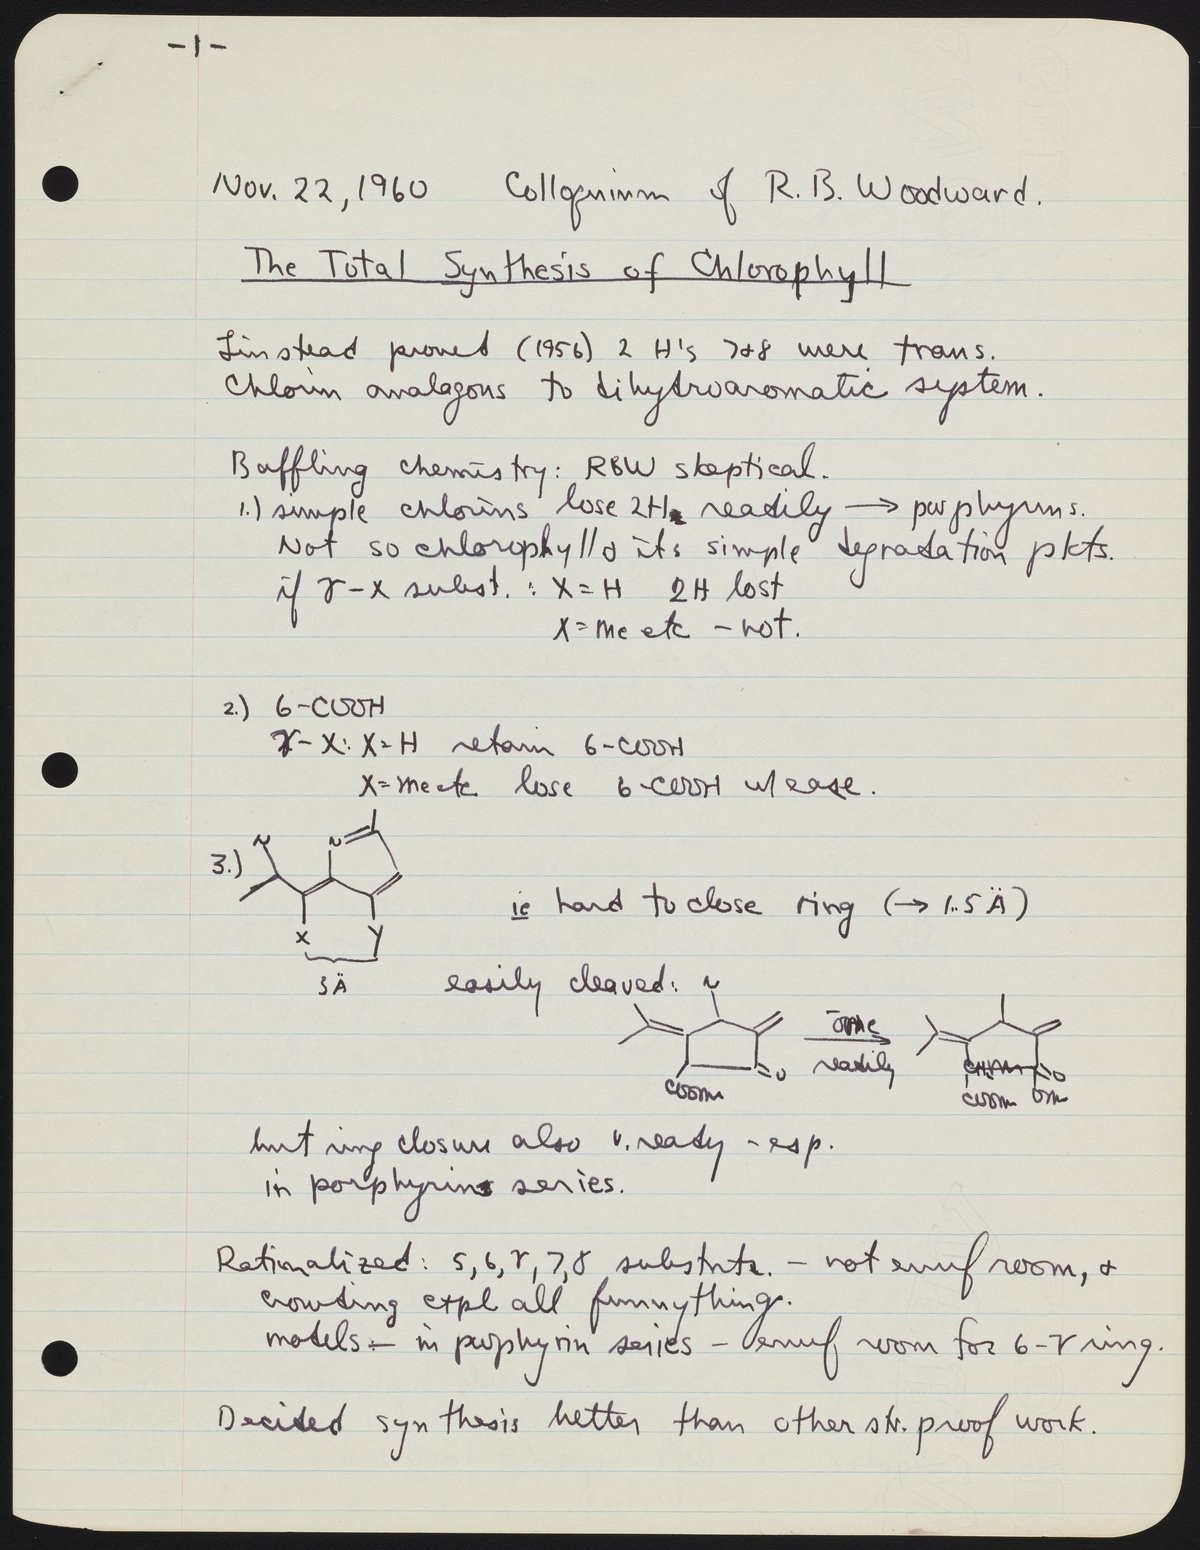 -1-
Nov. 22, 1960 Colloquium of R. B. Woodward.
The Total Synthesis of Chlorophyll
Linstead proved (1956) 2 H's 7+8 were trans.
Chlorin analagous to dihydroaromatic system.
Baffling chemistry: RBW skeptical.
1.) simple chlorins lose 2H readily → porphyrins.
Not so chlorophyll & its simple degradation pdts.
if γ-X subst. : X=H 2H lost
X=Me etc - not.
2.) 6-COOH
γ-X: X=H retain 6-COOH
X=Me etc lose 6-COOH w/ ease.
3.) N N
X Y
3Å
ie hard to close ring (→ 1.5 Å)
easily cleaved: N
COOMe O
OMe
readily
O
COOMe OMe
but ring closure also v. ready - esp.
in porphyrin series.
Rationalized: 5, 6, γ, 7, 8 substnts. - not enuf room, &
crowding expl all funny things.
models - in porphyrin series - enuf room for 6-γ ring.
Decided synthesis better than other str. proof work.